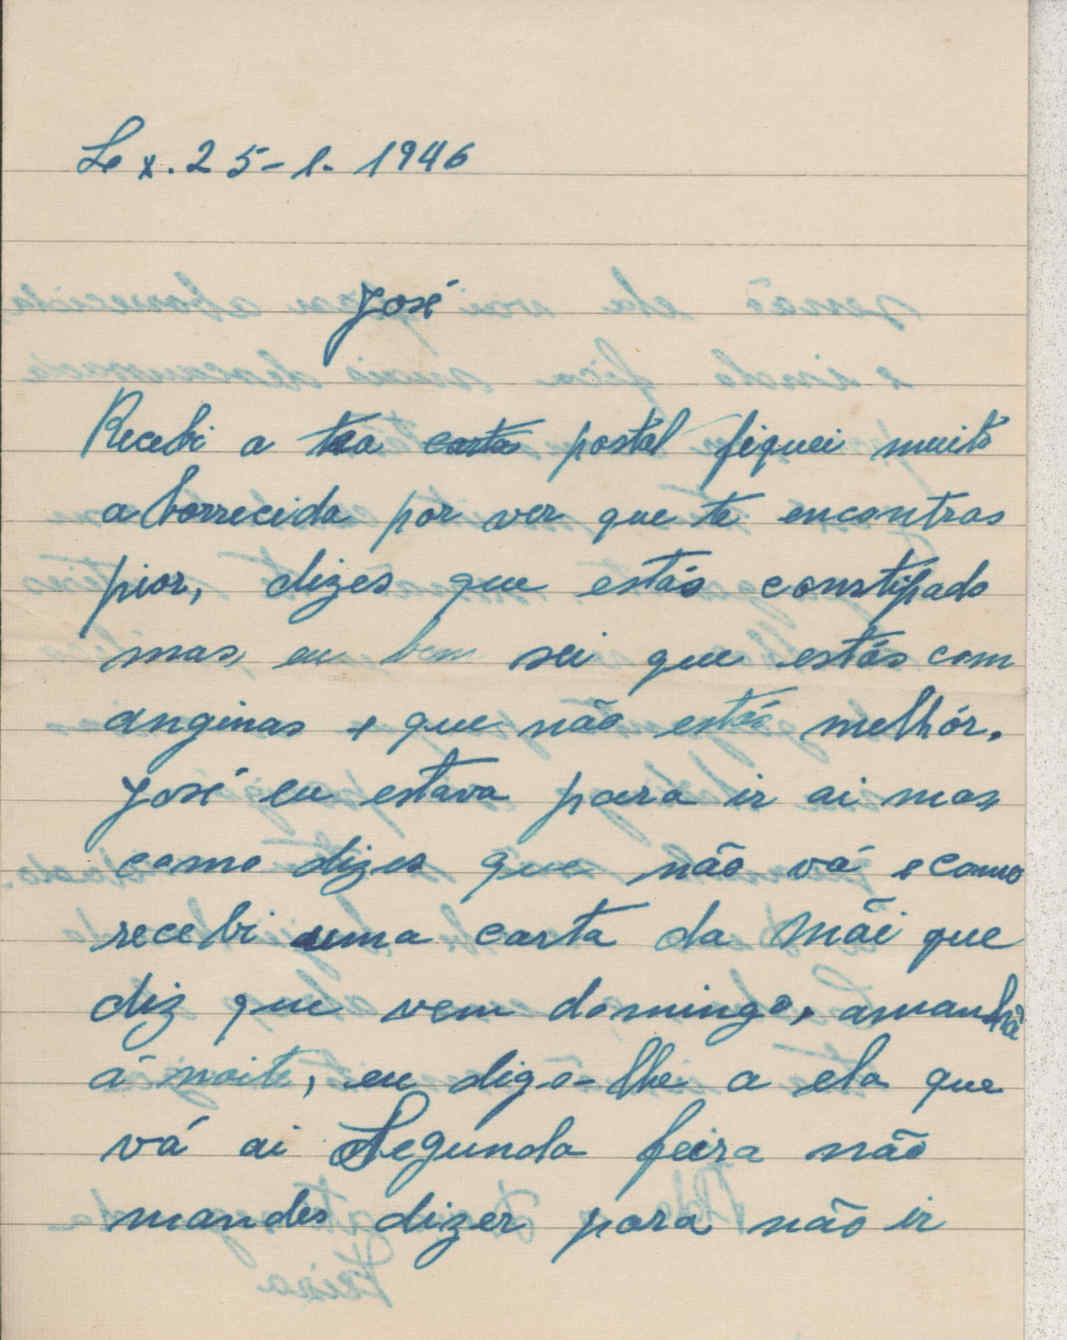 Lx. 25-1-1946
José
Recebi a tua carta postal fiquei muito
aborrecida por ver que te encontras
pior, dizes que estás constipado
mas, eu bem sei que estás com
anginas e que não estás melhór.
José eu estava para ir ai mas
como dizes que não vá e como
recebi uma carta da Mãi que
diz que vem domingo, amanhã
á noite, eu digo-lhe a ela que
vá ai Segunda feira não
mandes dizer para não ir